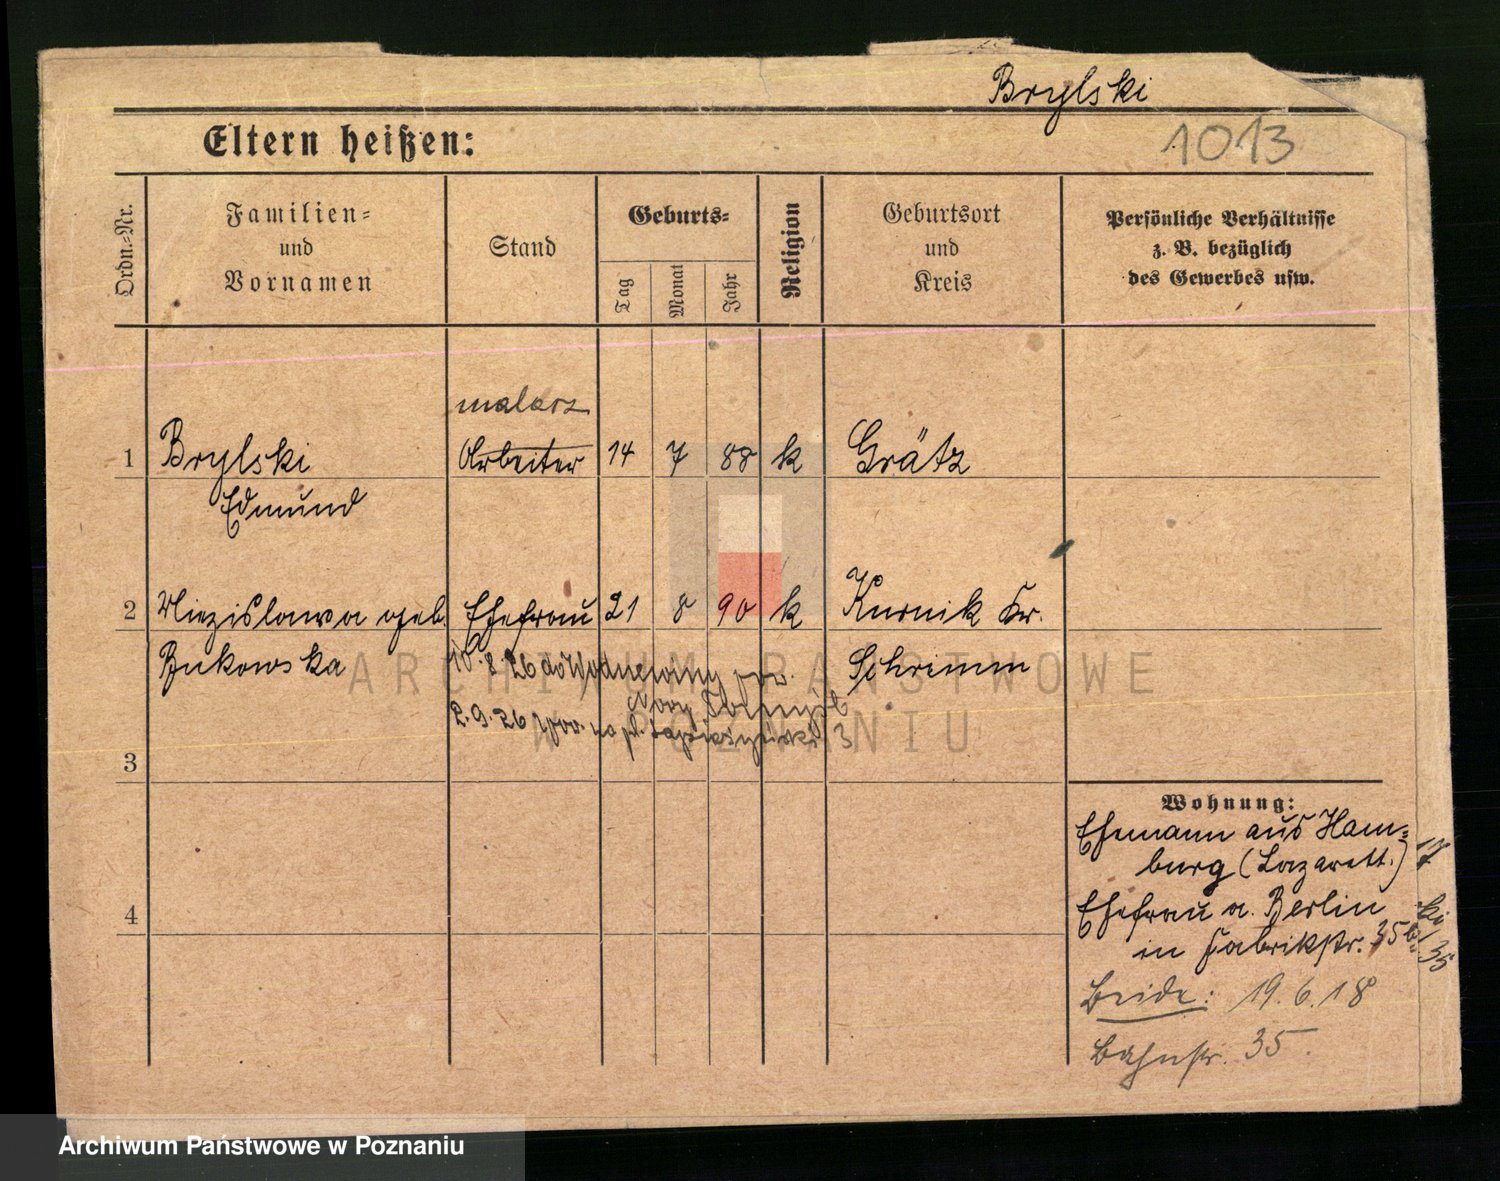 Brylski
1013
Eltern heißen:
Ordn.=Nr.
Familien=
und
Vornamen
Stand
Geburts=
Tag
Monat
Jahr
Religion
Geburtsort
und
Kreis
Persönliche Verhältnisse
z. B. bezüglich
des Gewerbes usw.
malarz
1 Brylski Arbeiter 14 7 88 k Grätz
Edmund
2 Miezislawa geb. Ehefrau 21 8 90 k Kurnik Kr.
Bukowska Schrimm
10.8.26 do
2.9.26
3
4
Wohnung:
Ehemann aus Ham=
burg (Lazarett.)
Ehefrau a. Berlin
in Fabrikstr. 35
Beide: 19.6.18
Bahnstr. 35.
17
ki
35
ARCHIWUM PAŃSTWOWE
W POZNANIU
Archiwum Państwowe w Poznaniu